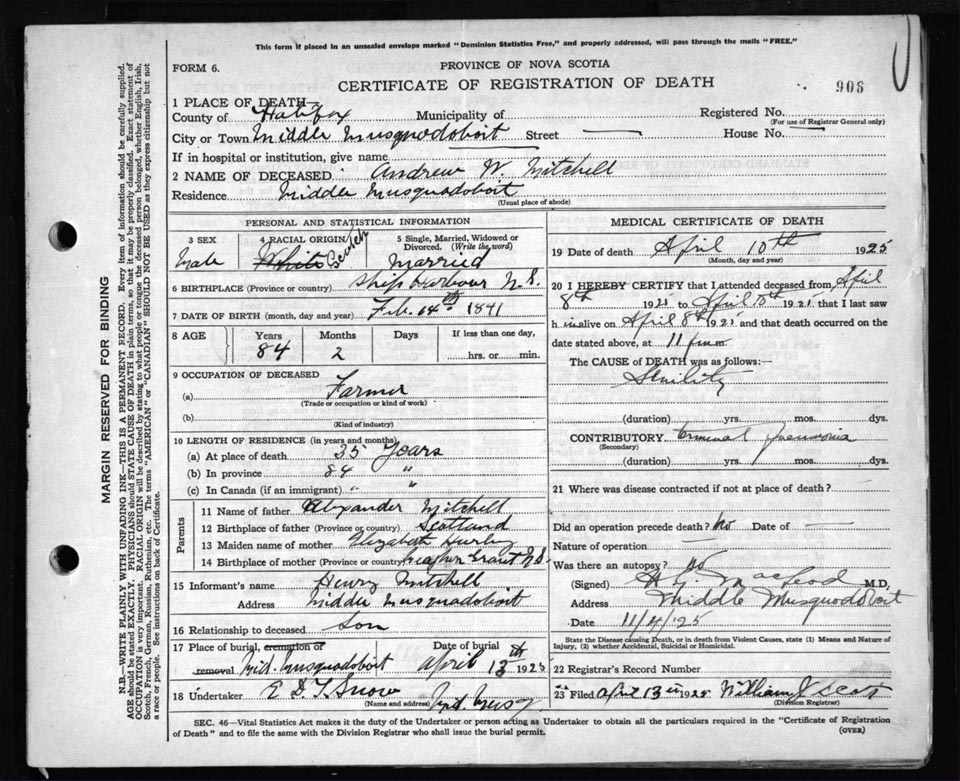 This form if placed in an unsealed envelope marked "Dominion Statistics Free," and properly addressed, will pass through the mails "FREE."
FORM 6.
PROVINCE OF NOVA SCOTIA
CERTIFICATE OF REGISTRATION OF DEATH
906
1 PLACE OF DEATH—
County of Halifax Municipality of Registered No.
(For use of Registrar General only)
City or Town Middle Musquodoboit Street — House No. —
If in hospital or institution, give name
2 NAME OF DECEASED Andrew W. Mitchell
Residence Middle Musquodoboit
(Usual place of abode)
PERSONAL AND STATISTICAL INFORMATION
3 SEX
Male
4 RACIAL ORIGIN
White Scotch
5 Single, Married, Widowed or Divorced. (Write the word)
Married
6 BIRTHPLACE (Province or country) Ship Harbour N.S.
7 DATE OF BIRTH (month, day and year) Feb. 14th 1841
8 AGE Years Months Days If less than one day,
84 2 hrs. or min.
9 OCCUPATION OF DECEASED
(a) Farmer
(Trade or occupation or kind of work)
(b)
(Kind of industry)
10 LENGTH OF RESIDENCE (in years and months)
(a) At place of death 35 Years
(b) In province 84 "
(c) In Canada (if an immigrant) "
Parents
11 Name of father Alexander Mitchell
12 Birthplace of father (Province or country) Scotland
13 Maiden name of mother Elizabeth
14 Birthplace of mother (Province or country) Grant N.S.
15 Informant's name Henry Mitchell
Address Middle Musquodoboit
16 Relationship to deceased Son
17 Place of burial, cremation or Date of burial
removal Mid. Musquodoboit April 13th 1925
18 Undertaker E. D. T. Snow Mid. Musq
(Name and address)
MEDICAL CERTIFICATE OF DEATH
19 Date of death April 10th 1925
(Month, day and year)
20 I HEREBY CERTIFY that I attended deceased from April
8th 1925 to April 8th 1925 that I last saw
h im alive on April 8th 1925 and that death occurred on the
date stated above, at 11 p.m.
The CAUSE of DEATH was as follows:
Senility
(duration) yrs. mos. dys.
CONTRIBUTORY Terminal Pneumonia
(Secondary)
(duration) yrs. mos. dys.
21 Where was disease contracted if not at place of death? —
Did an operation precede death? No Date of —
Nature of operation —
Was there an autopsy? No
(Signed) MacLeod M.D.
Address Middle Musquodoboit
Date 11/4/'25
State the Disease causing Death, or in death from Violent Causes, state (1) Means and Nature of Injury, (2) whether Accidental, Suicidal or Homicidal.
22 Registrar's Record Number
23 Filed April 13th 1925 William J Scott
(Division Registrar)
SEC. 46—Vital Statistics Act makes it the duty of the Undertaker or person acting as Undertaker to obtain all the particulars required in the "Certificate of Registration
of Death" and to file the same with the Division Registrar who shall issue the burial permit.
(OVER)
MARGIN RESERVED FOR BINDING
N.B.—WRITE PLAINLY WITH UNFADING INK—THIS IS A PERMANENT RECORD. Every item of information should be carefully supplied.
AGE should be stated EXACTLY. PHYSICIANS should STATE CAUSE OF DEATH in plain terms, so that it may be properly classified. Exact statement of
OCCUPATION is very important. RACIAL ORIGIN will be described by stating to what people or tongue the deceased person belonged, whether English, Irish,
Scotch, French, German, Russian, Ruthenian, etc. The terms "AMERICAN" or "CANADIAN" SHOULD NOT BE USED as they express citizenship but not
a race or people. See instructions on back of Certificate.